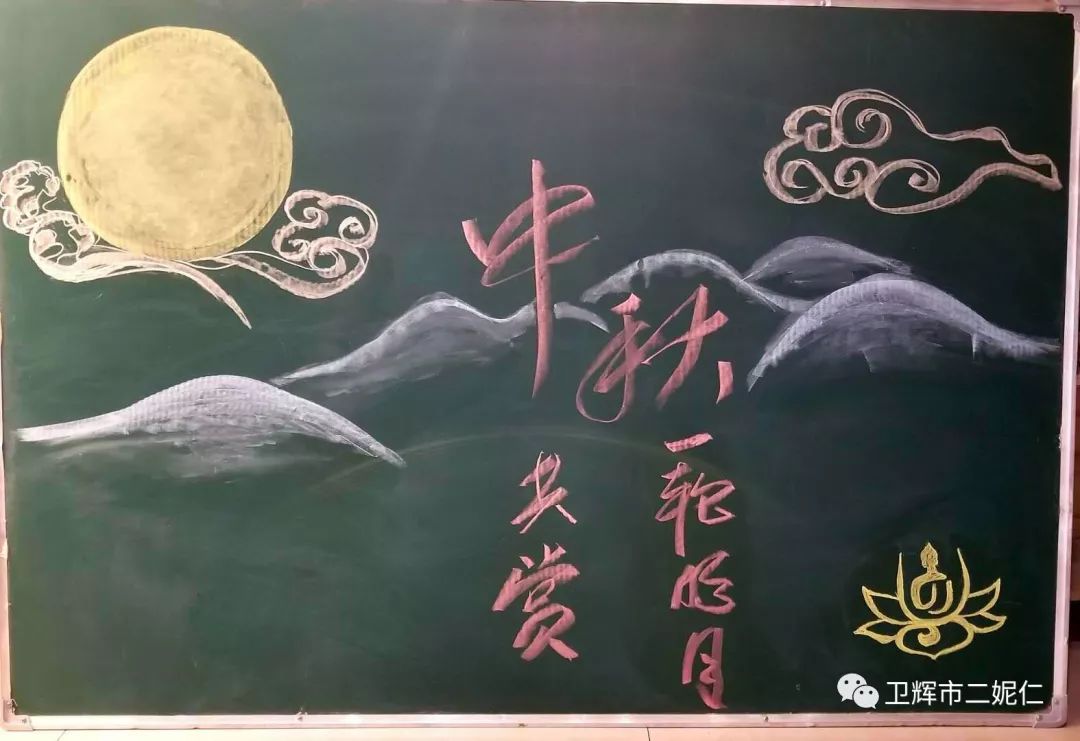 中秋
共赏
一轮明月
卫辉市二妮仁